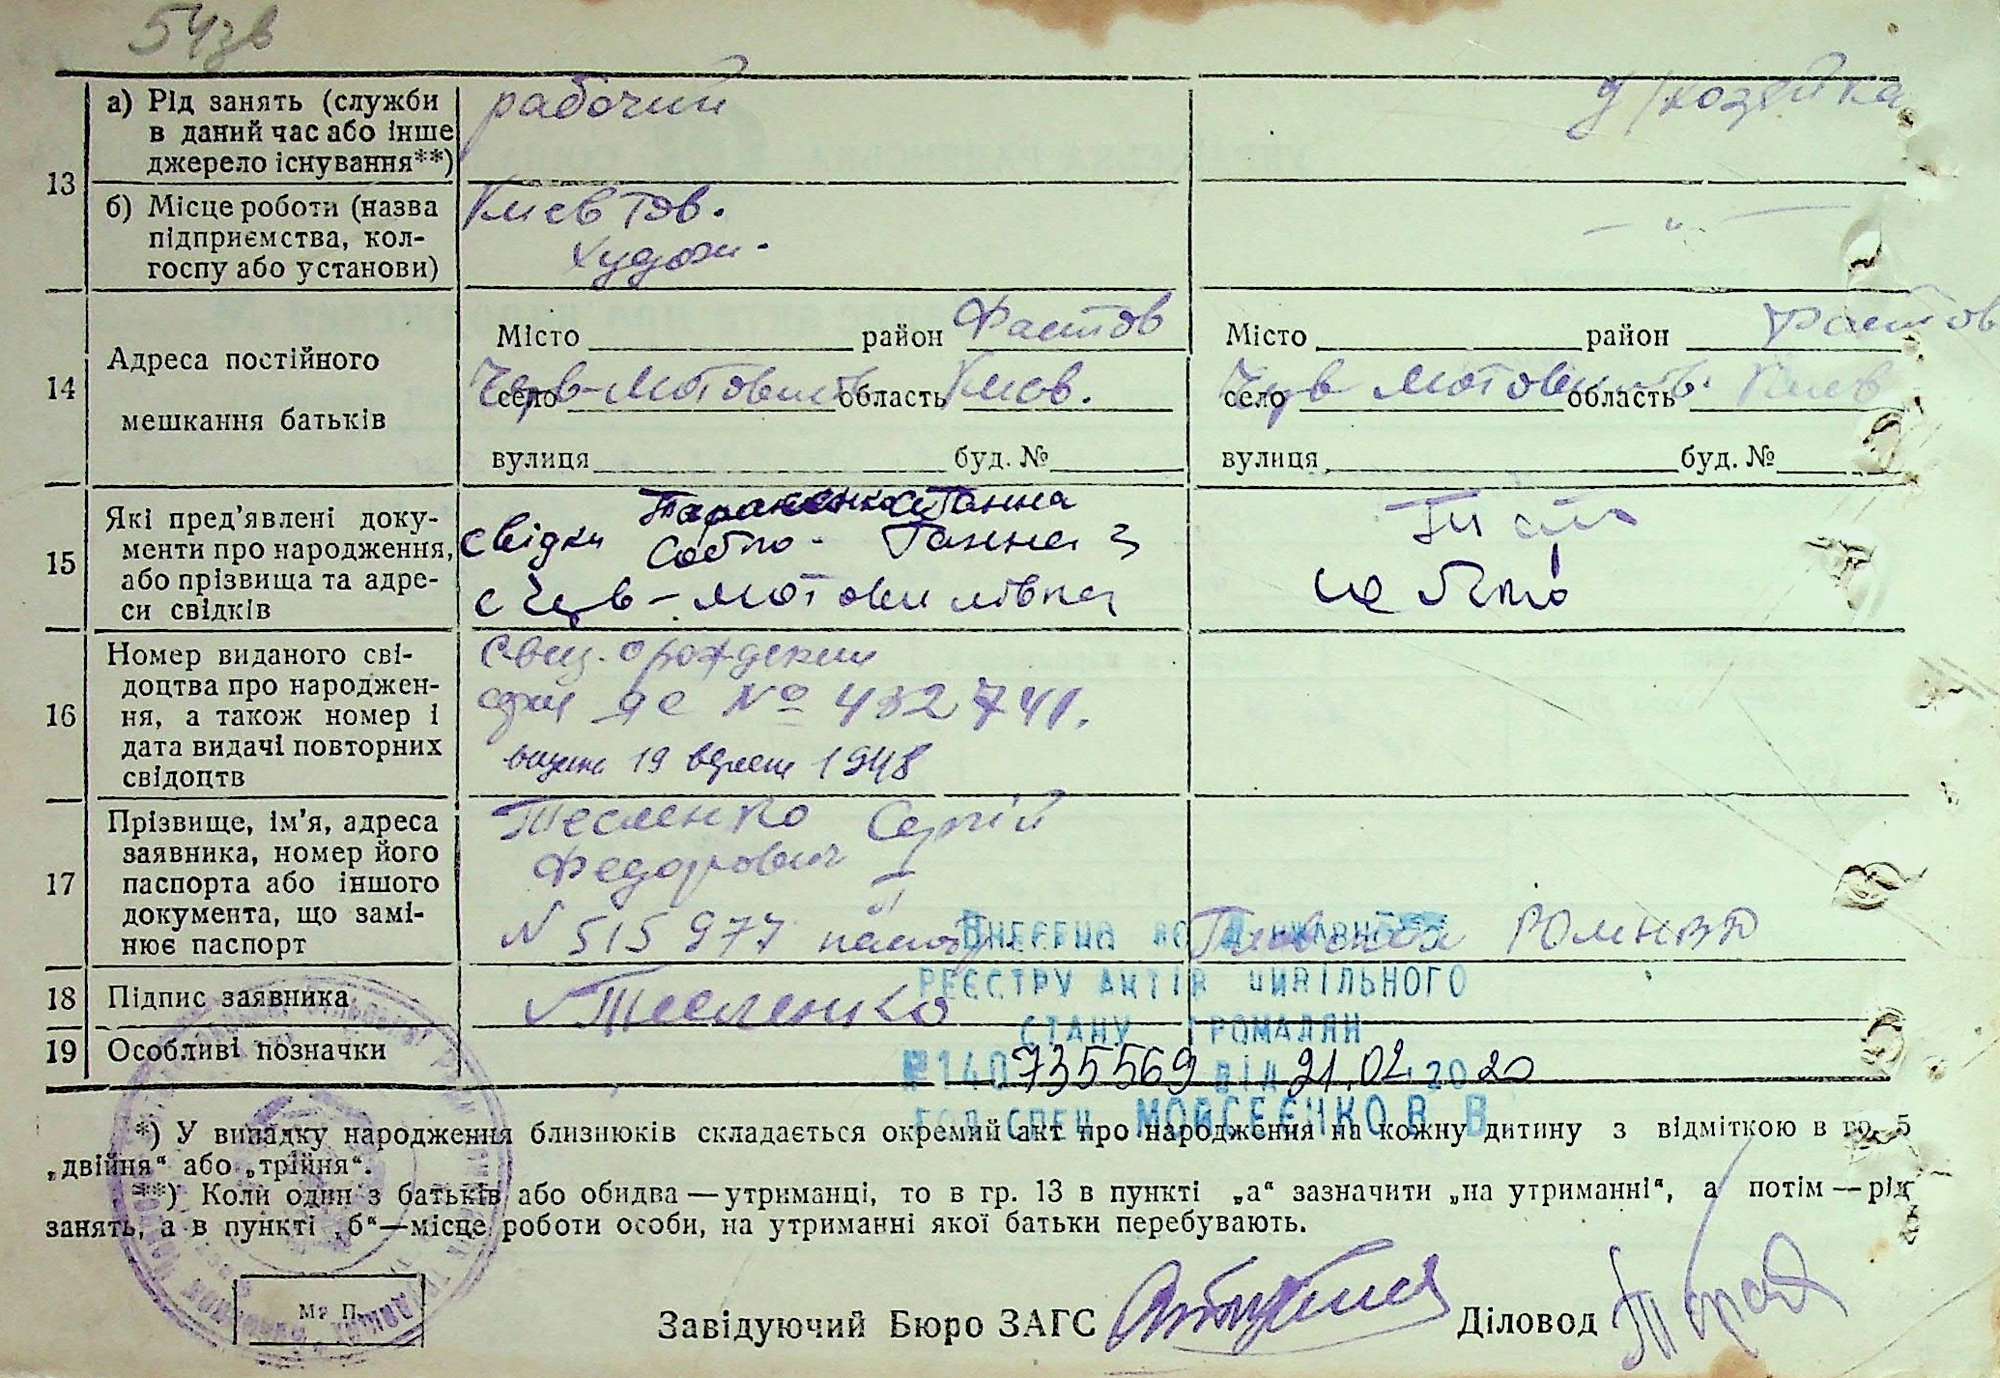 54зв
13
а) Рід занять (служби в даний час або інше джерело існування**)
рабочий
д/хозяйка
б) Місце роботи (назва підприємства, колгоспу або установи)
Киев тов.
— " —
14
Адреса постійного мешкання батьків
Місто район Фастов
село Черв-Мотовил область Киев.
вулиця буд. №
Місто район Фастов
село Черв Мотовил область Киев
вулиця буд. №
15
Які пред'явлені документи про народження, або прізвища та адреси свідків
Ганна
свідки Ганна з
с Черв-Мотовилівка
16
Номер виданого свідоцтва про народження, а також номер і дата видачі повторних свідоцтв
Свид. о рождении
серия ЯС № 432741.
19 1948
17
Прізвище, ім'я, адреса заявника, номер його паспорта або іншого документа, що замінює паспорт
Тесленко Сергій
Федорович
N 515977
18
Підпис заявника
Тесленко
19
Особливі позначки
Внесено до Державного
реєстру актів цивільного
стану громадян
№ 140735569 від 21.02.2020
гол.спец. Мойсеєнко В.В
*) У випадку народження близнюків складається окремий акт про народження на кожну дитину з відміткою в гр. 5
„двійня“ або „трійня“.
**) Коли один з батьків або обидва — утриманці, то в гр. 13 в пункті „а“ зазначити „на утриманні“, а потім — рід
занять, а в пункті „б“—місце роботи особи, на утриманні якої батьки перебувають.
М. П.
Завідуючий Бюро ЗАГС
Діловод